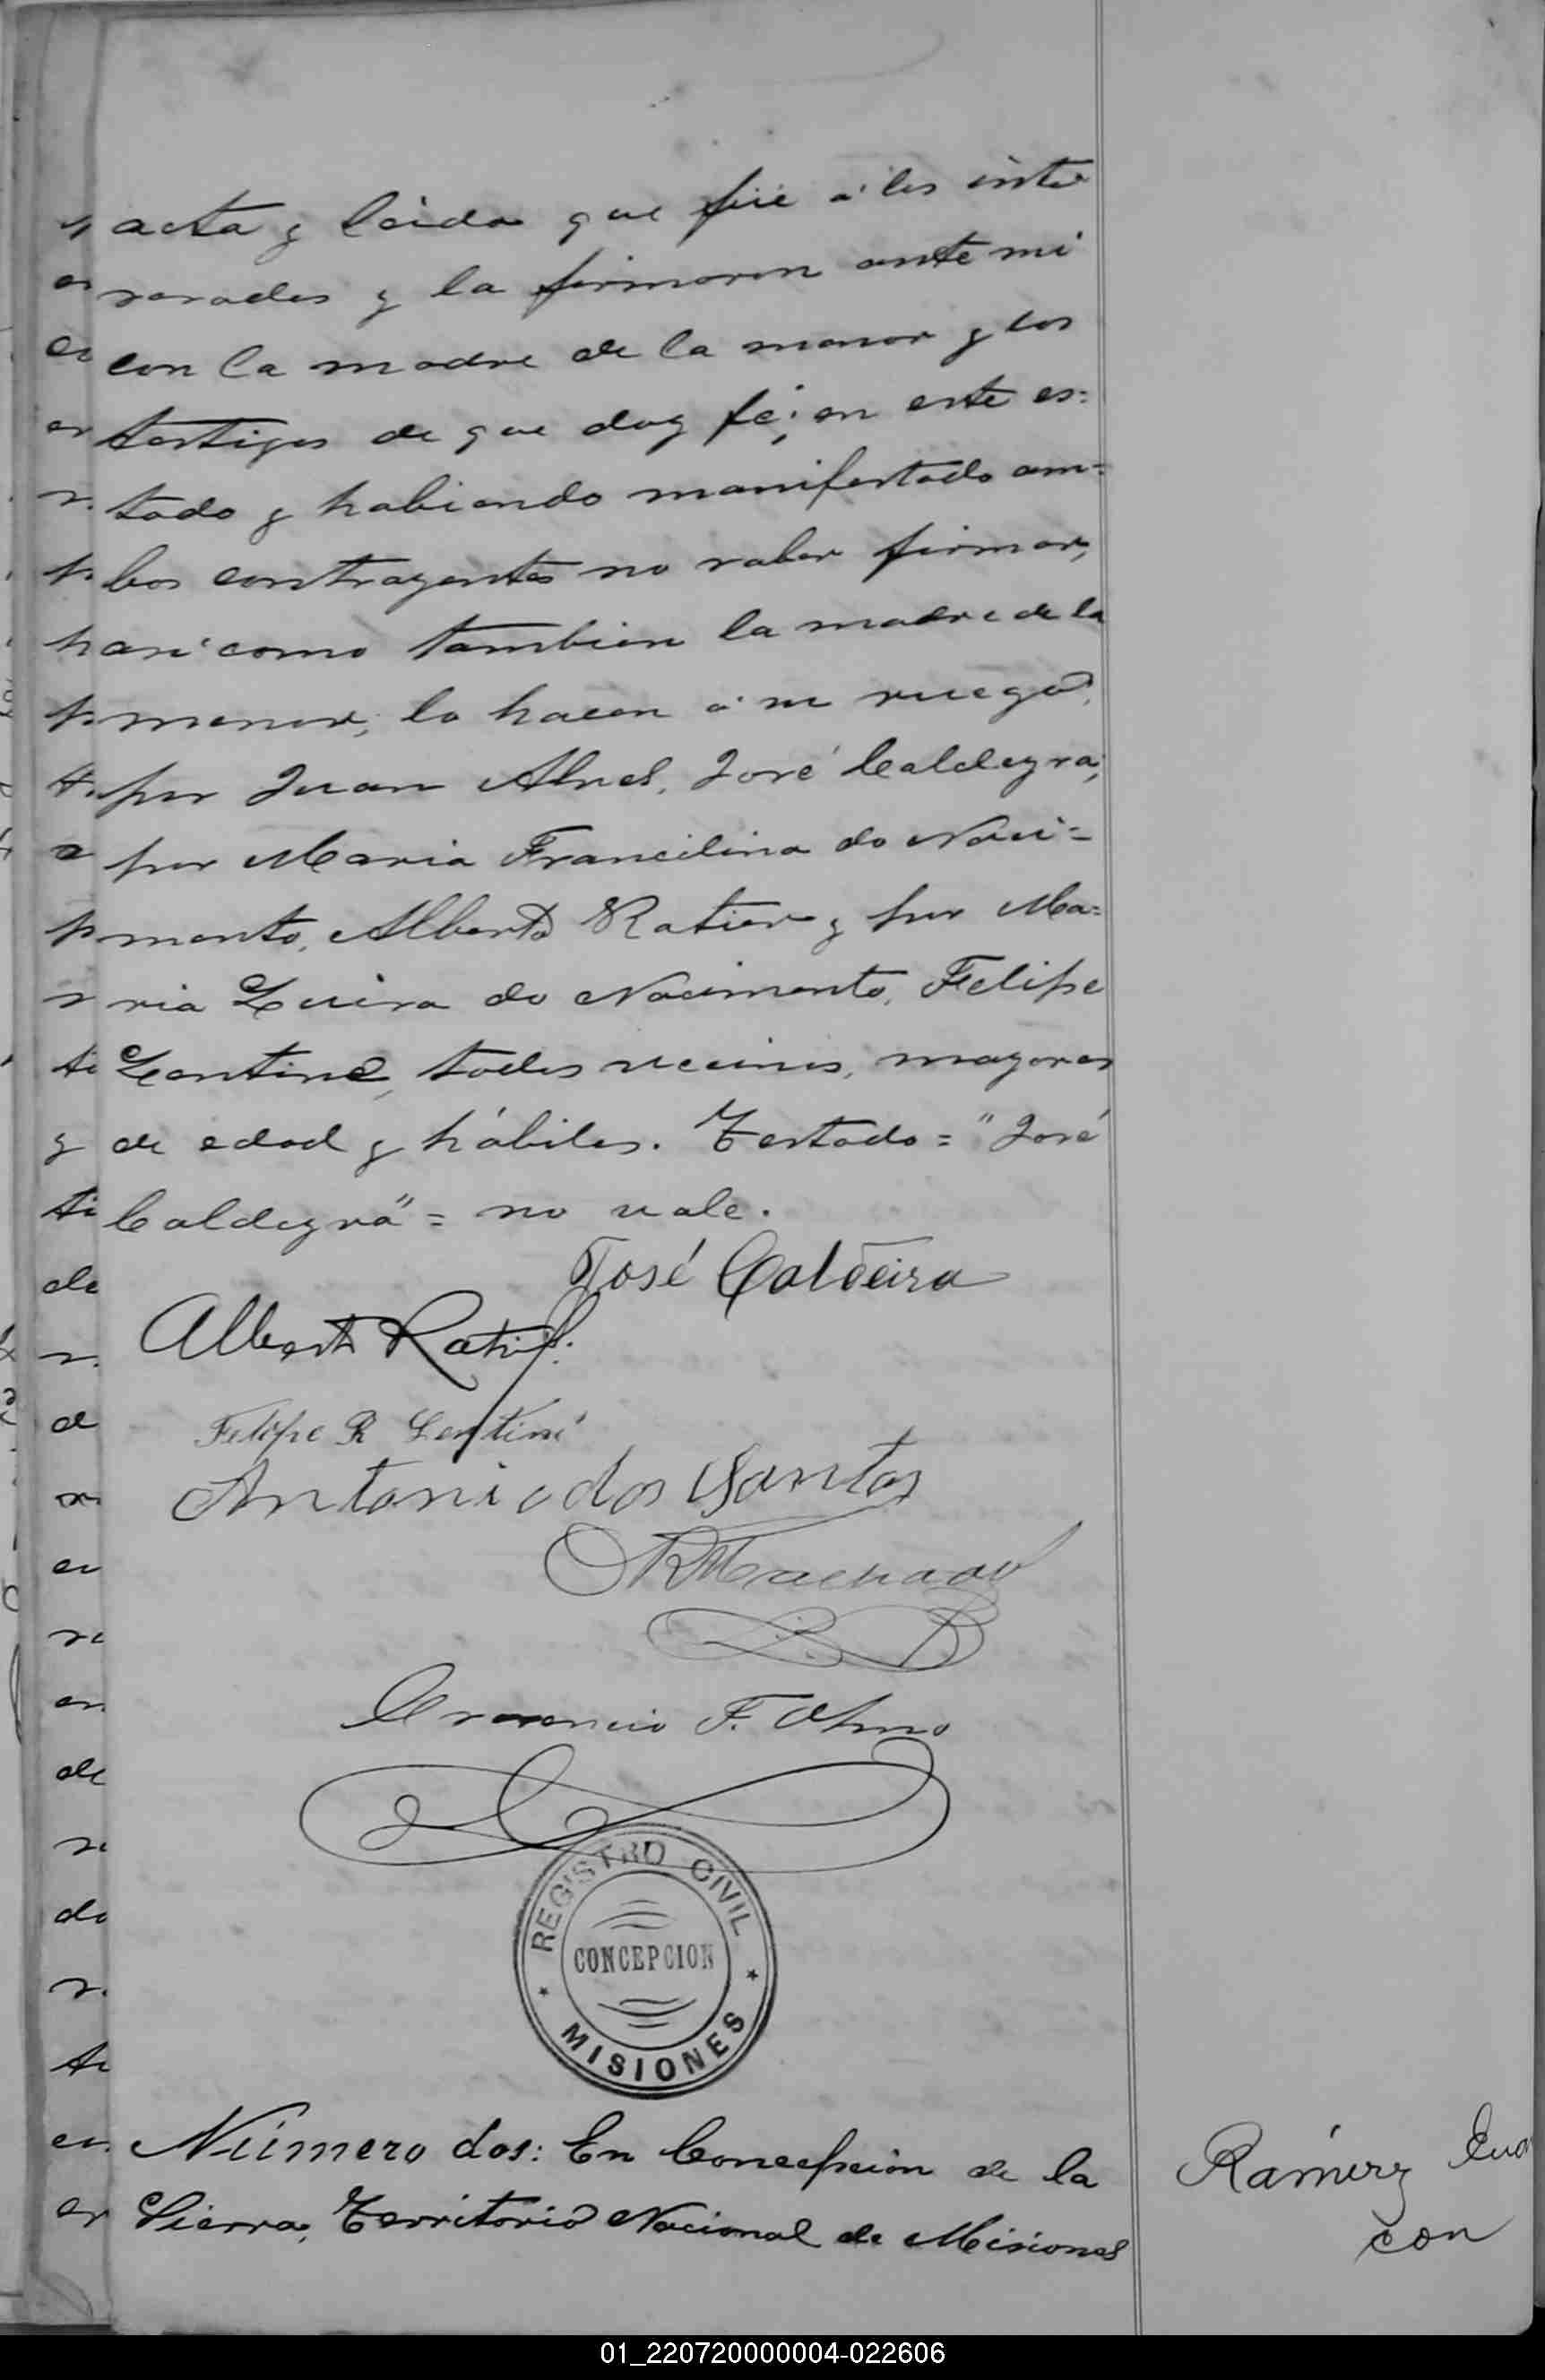 acta y leida que fué á los inte
resados y la firmaron ante mi
con la madre de la menor y los
testigos de que doy fé; en este es=
tado y habiendo manifestado am=
bos contrayentes no saber firmar,
asi como tambien la madre de la
menor, lo hacen á su ruego,
por Juan Alves, José Caldeyra,
por Maria Francilina do Naci=
mento, Alberto Ratier y por Ma=
ria Luisa do Nacimento, Felipe
Lentine, todos vecinos, mayores
de edad y hábiles. Testado = "José
Caldeyra" = no vale.
José Caldeira
Albert Ratier
Felipe R Lentini
Antonio dos Santos
Machado
F. Olmo
REGISTRO CIVIL
CONCEPCION
MISIONES
Número dos: En Concepción de la
Sierra, Territorio Nacional de Misiones
Ramirez
con
01_220720000004-022606